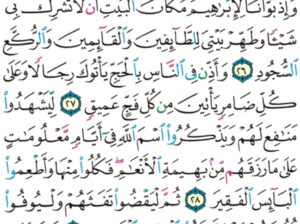 وَإِذۡ بَوَّأۡنَا لِإِبۡرَٰهِيمَ مَكَانَ ٱلۡبَيۡتِ أَن لَّا تُشۡرِكۡ بِي
شَيۡـٔٗا وَطَهِّرۡ بَيۡتِيَ لِلطَّآئِفِينَ وَٱلۡقَآئِمِينَ وَٱلرُّكَّعِ
ٱلسُّجُودِ ٢٦ وَأَذِّن فِي ٱلنَّاسِ بِٱلۡحَجِّ يَأۡتُوكَ رِجَالٗا وَعَلَىٰ
كُلِّ ضَامِرٖ يَأۡتِينَ مِن كُلِّ فَجٍّ عَمِيقٖ ٢٧ لِّيَشۡهَدُواْ
مَنَٰفِعَ لَهُمۡ وَيَذۡكُرُواْ ٱسۡمَ ٱللَّهِ فِيٓ أَيَّامٖ مَّعۡلُومَٰتٍ
عَلَىٰ مَا رَزَقَهُم مِّنۢ بَهِيمَةِ ٱلۡأَنۡعَٰمِۖ فَكُلُواْ مِنۡهَا وَأَطۡعِمُواْ
ٱلۡبَآئِسَ ٱلۡفَقِيرَ ٢٨ ثُمَّ لۡيَقۡضُواْ تَفَثَهُمۡ وَلۡيُوفُواْ